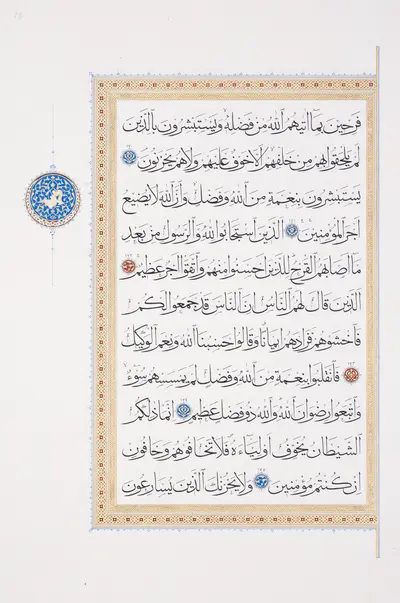 فَرِحِينَ بِمَا آتَاهُمُ اللَّهُ مِنْ فَضْلِهِ وَيَسْتَبْشِرُونَ بِالَّذِينَ
لَمْ يَلْحَقُوا بِهِمْ مِنْ خَلْفِهِمْ أَلَّا خَوْفٌ عَلَيْهِمْ وَلَا هُمْ يَحْزَنُونَ
يَسْتَبْشِرُونَ بِنِعْمَةٍ مِنَ اللَّهِ وَفَضْلٍ وَأَنَّ اللَّهَ لَا يُضِيعُ
أَجْرَ الْمُؤْمِنِينَ الَّذِينَ اسْتَجَابُوا لِلَّهِ وَالرَّسُولِ مِنْ بَعْدِ
مَا أَصَابَهُمُ الْقَرْحُ لِلَّذِينَ أَحْسَنُوا مِنْهُمْ وَاتَّقَوْا أَجْرٌ عَظِيمٌ
الَّذِينَ قَالَ لَهُمُ النَّاسُ إِنَّ النَّاسَ قَدْ جَمَعُوا لَكُمْ
فَاخْشَوْهُمْ فَزَادَهُمْ إِيمَانًا وَقَالُوا حَسْبُنَا اللَّهُ وَنِعْمَ الْوَكِيلُ
فَانْقَلَبُوا بِنِعْمَةٍ مِنَ اللَّهِ وَفَضْلٍ لَمْ يَمْسَسْهُمْ سُوءٌ
وَاتَّبَعُوا رِضْوَانَ اللَّهِ وَاللَّهُ ذُو فَضْلٍ عَظِيمٍ إِنَّمَا ذَلِكُمُ
الشَّيْطَانُ يُخَوِّفُ أَوْلِيَاءَهُ فَلَا تَخَافُوهُمْ وَخَافُونِ
إِنْ كُنْتُمْ مُؤْمِنِينَ وَلَا يَحْزُنْكَ الَّذِينَ يُسَارِعُونَ